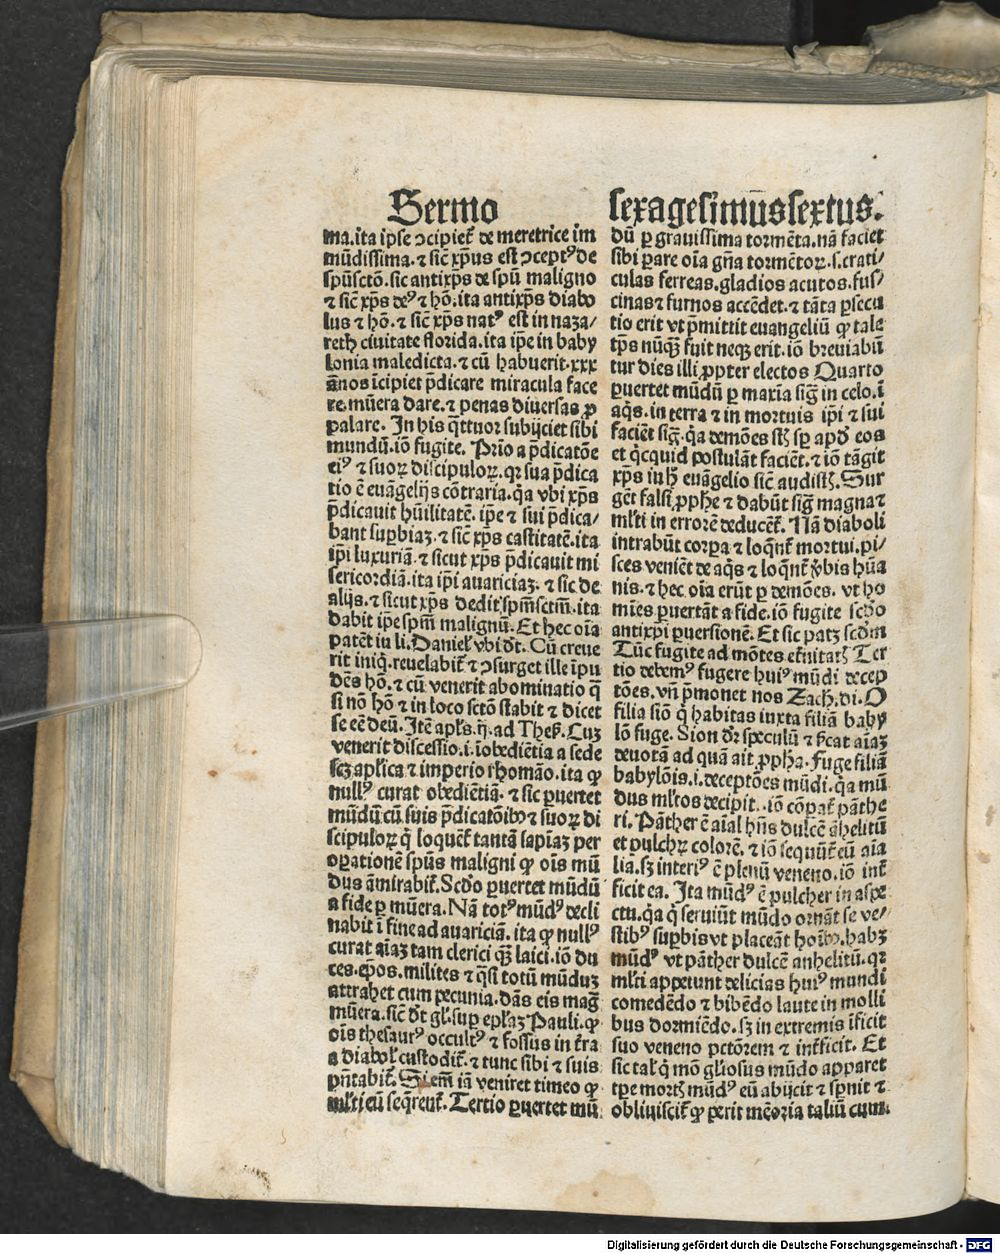 Sermo
ma.ita ipſe ↄcipiet᷑ de meretrice im
mūdiſſima.⁊ ſic̄ xp̄us eſt ↄcept⁹ de
ſpūſctō.ſic antixp̄s de ſpū maligno
⁊ ſic̄ xp̄s de⁹ ⁊ hō.ita antixp̄s diabo
lus ⁊ hō.⁊ ſic̄ xp̄s nat⁹ eſt in naza/
reth ciuitate florida.ita ip̄e in baby
lonia maledicta.⁊ cū habuerit.xxx
ānos īcipiet p̄dicare miracula face
re.mūera dare.⁊ penas diuerſas ꝓ
palare. In his q̄ttuor ſubijciet ſibi
mundū.iō fugite. Prīo a p̄dicatōe
ei⁹ ⁊ ſuoꝝ diſcipuloꝝ.qꝛ ſua p̄dica
tio ē euāgelijs cōtraria.q̇a vbi xp̄s
p̄dicauit hūilitatē.ip̄e ⁊ ſui p̄dica/
bant ſuꝑbiaꝫ.⁊ ſic̄ xp̄s caſtitatē.ita
ip̄i luxuriā.⁊ ſicut xp̄s p̄dicauit mi
ſericordiā.ita ip̄i auariciaꝫ.⁊ ſic de
alijs.⁊ ſicut xp̄s dedit ſpm̄ſctm̄.ita
dabit ip̄e ſpm̄ malignū. Et hec oīa
patēt in li. Daniel̓ vbi dr̄. Cū creue
rit iniq̇.reuelabit᷑ ⁊ ↄſurget ille īpu
dēs hō.⁊ cū venerit abominatio q̄
ſi nō hō ⁊ in loco ſctō ſtabit ⁊ dicet
ſe eē deū. Itē apl̓s.ij.ad Theſ. Cuꝫ
venerit diſceſſio.i.īobediētia a ſede
ſcꝫ apl̓ica ⁊ imperio rhomāo.ita ꝙ
null⁹ curat obediētiā.⁊ ſic ꝑuertet
mūdū cū ſuis p̄dicatōibꝰ ⁊ ſuoꝝ di
ſcipuloꝝ q̇ loquēt᷑ tantā ſapīaꝫ per
oꝑationē ſpūs maligni ꝙ oīs mū
dus āmirabit᷑. Scd̓o ꝑuertet mūdū
a fide ꝑ mūera. Nā tot⁹ mūd⁹ decli
nabit ī fine ad auariciā.ita ꝙ null⁹
curat aīaꝫ tam clerici qꝫ laici.iō du
ces.ep̄os.milites ⁊ q̄ſi totū mūduꝫ
attrahet cum pecunia.dās eis maḡ
mūera.ſic̄ dt̓ gl̓.ſuꝑ epl̓aꝫ Pauli.ꝙ
oīs theſaur⁹ occult⁹ ⁊ foſſus in t᷑ra
a diabol̓ cuſtodit᷑.⁊ tunc ſibi ⁊ ſuis
pn̄tabit᷑. Si em̄ iā veniret timeo ꝙ
ml̓ti eū ſeq̄rent᷑. Tertio ꝑuertet mū
ſexageſimūsſextus.
dū ꝑ grauiſſima tormēta.nā faciet
ſibi ꝑare oīa gn̄a tormētoꝝ.ſ.crati/
culas ferreas.gladios acutos.fuſ/
cinas ⁊ furnos accēdet.⁊ tāta ꝑſecu
tio erit vt p̄mittit euangeliū ꝙ tale
tp̄s nūꝙ̄ fuit neqꝫ erit.iō breuiabū
tur dies illi ꝓpter electos Quarto
ꝑuertet mūdū ꝑ maxīa ſiḡ in celo.ī
aq̇s.in terra ⁊ in mortuis ip̄i ⁊ ſui
faciēt ſiḡ.q̇a demōes ſt̓ ſꝑ apd̓ eos
et q̇cquid poſtulāt faciēt.⁊ iō tāgit
xp̄s in h̓ euāgelio ſic̄ audiſtꝭ. Sur
gēt falſi ꝓph̄e ⁊ dabūt ſiḡ magna ⁊
ml̓ti in errorē deducēt᷑. Nā diaboli
intrabūt corꝑa ⁊ loq̄nt᷑ mortui.pi/
ſces veniēt de aq̇s ⁊ loq̄nt᷑ v̓bis hūa
nis.⁊ hec oīa erūt ꝑ demōes. vt ho
mīes ꝑuertāt a fide.iō fugite ſcd̓o
antixpi ꝑuerſionē. Et ſic patꝫ ſcd̓m
Tūc fugite ad mōtes et̓nitatꝭ Ter
tio debem⁹ fugere hui⁹ mūdi decep
tōes. vn̄ p̄monet nos Zach.di. O
filia ſiō q̇ habitas iuxta filiā baby
lō fuge. Sion dr̄ ſpeculū ⁊ ſ̓cat aīaꝫ
deuotā ad quā ait ꝓph̄a. Fuge filiā
babylōis.i.deceptōes mūdi.q̇a mū
dus ml̓tos decipit..iō cōꝑat᷑ pāthe
ri. Pāther ē aīal hn̄s dulcē āhelitū
et pulchꝝ colorē.⁊ iō ſequūt᷑ eū aīa
lia.ſꝫ interi⁹ ē plenū veneno.iō int᷑
ficit ea. Ita mūd⁹ ē pulcher in aſpe
ctu.q̇a q̇ ſeruiūt mūdo ornāt ſe ve/
ſtib⁹ ſuꝑbis vt placeāt hoībꝰ.habꝫ
mūd⁹ vt pāther dulcē anhelitū.qꝛ
ml̓ti appetunt delicias hui⁹ mundi
comedēdo ⁊ bibēdo laute in molli
bus dormiēdo.ſꝫ in extremis īficit
ſuo veneno pctōrem ⁊ int᷑ficit. Et
ſic tal̓ q̇ mō gl̓ioſus mūdo apparet
tꝑe mortꝭ mūd⁹ eū abijcit ⁊ ſꝑnit ⁊
obliuiſcit᷑ ꝙ perit mēoria taliū cum
Digitalisierung gefördert durch die Deutsche Forschungsgemeinschaft - DFG